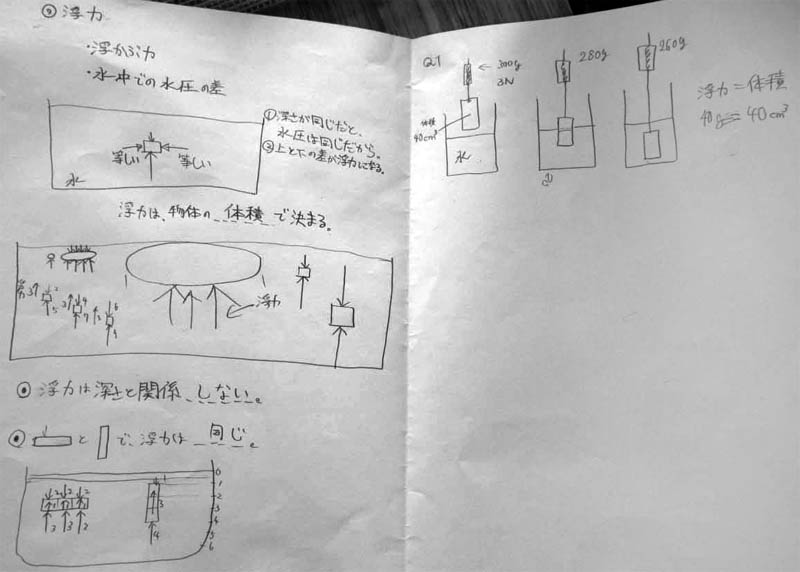 浮力
・浮かぶ力
・水中での水圧の差
①深さが同じだと、
水圧は同じだから。
②上と下の差が浮力になる。
等しい 等しい
水
浮力は、物体の 体積 で決まる。
浮力
浮力は深さと関係 しない。
と で、浮力は 同じ。
0
1
2
3
4
5
6
2 2 2
3 3 3
1
3
4
Q1
300g
3N
280g
260g
体積
40cm³
水
浮力=体積
40g 40cm³